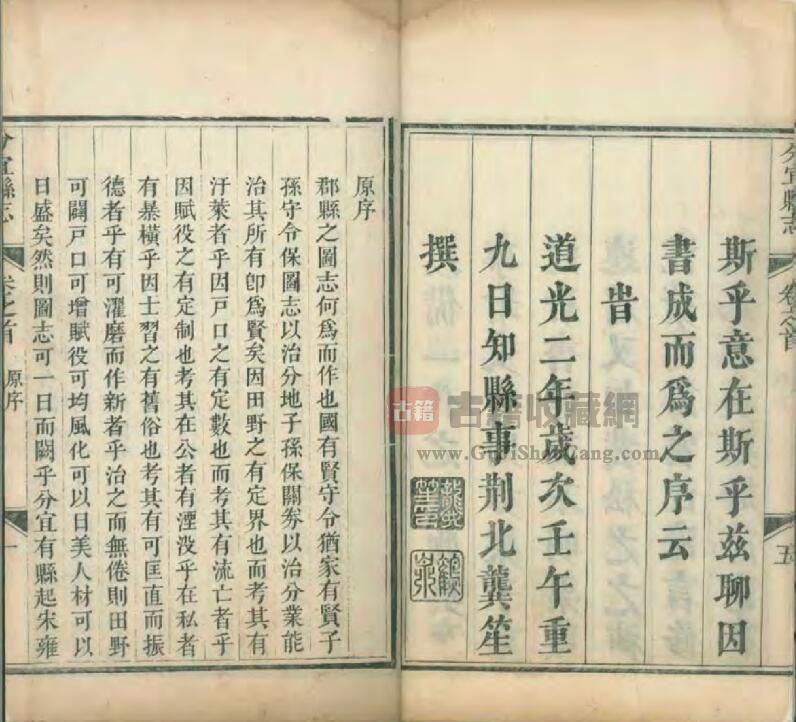 分宜縣志
卷之首
五
斯乎意在斯乎茲聊因
書成而爲之序云
旹
道光二年歲次壬午重
九日知縣事荆北龔笙
撰
原序
郡縣之圖志何爲而作也國有賢守令猶家有賢子
孫守令保圖志以治分地子孫保關劵以治分業能
治其所有卽爲賢矣因田野之有定界也而考其有
汙萊者乎因戸口之有定數也而考其有流亡者乎
因賦役之有定制也考其在公者有湮没乎在私者
有暴橫乎因士習之有舊俗也考其有可匡直而振
德者乎有可濯磨而作新者乎治之而無倦則田野
可闢戸口可增賦役可均風化可以日美人材可以
日盛矣然則圖志可一日而闕乎分宜有縣起宋雍
分宜縣志
卷之首
原序
一
古籍
古籍收藏網
www.GujiShouCang.com